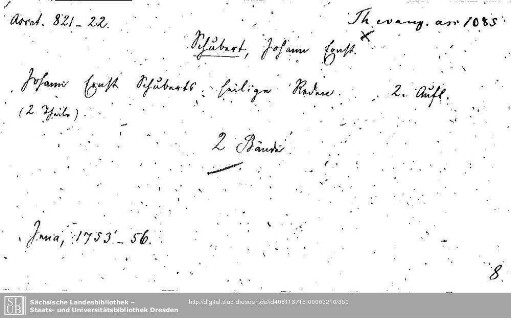 Ascet. 821-22.
Th evang. asc 1085
Schubert, Johann Ernst
Johann Ernst Schuberts heilige Reden. 2. Aufl.
(2 Theile)
2 Bände
Jena, 1753-56.
8.
SLUB
Sächsische Landesbibliothek –
Staats- und Universitätsbibliothek Dresden